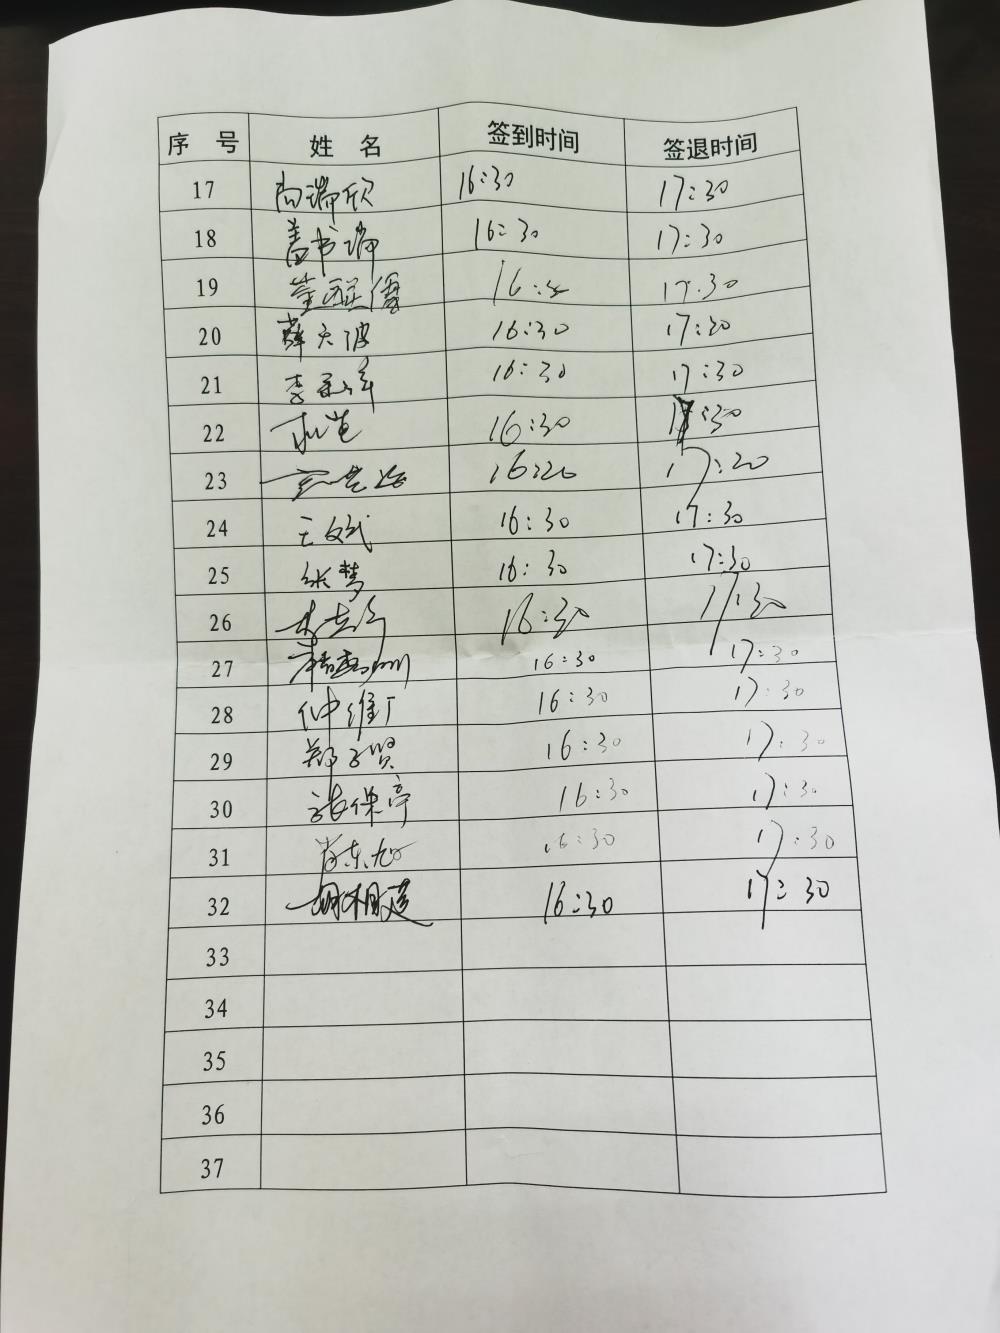 序 号 姓 名 签到时间 签退时间
17 向瑞欣 16:30 17:30
18 盖书瑞 16:30 17:30
19 16: 17:30
20 薛天波 16:30 17:30
21 李 16:30 17:30
22 16:30 17:30
23 16:20 17:20
24 王文斌 16:30 17:30
25 张梦 16:30 17:30
26 16:30 17:30
27 16:30 17:30
28 仲维厂 16:30 17:30
29 郑子贤 16:30 17:30
30 张保亭 16:30 17:30
31 肖东旭 16:30 17:30
32 胡相莲 16:30 17:30
33
34
35
36
37